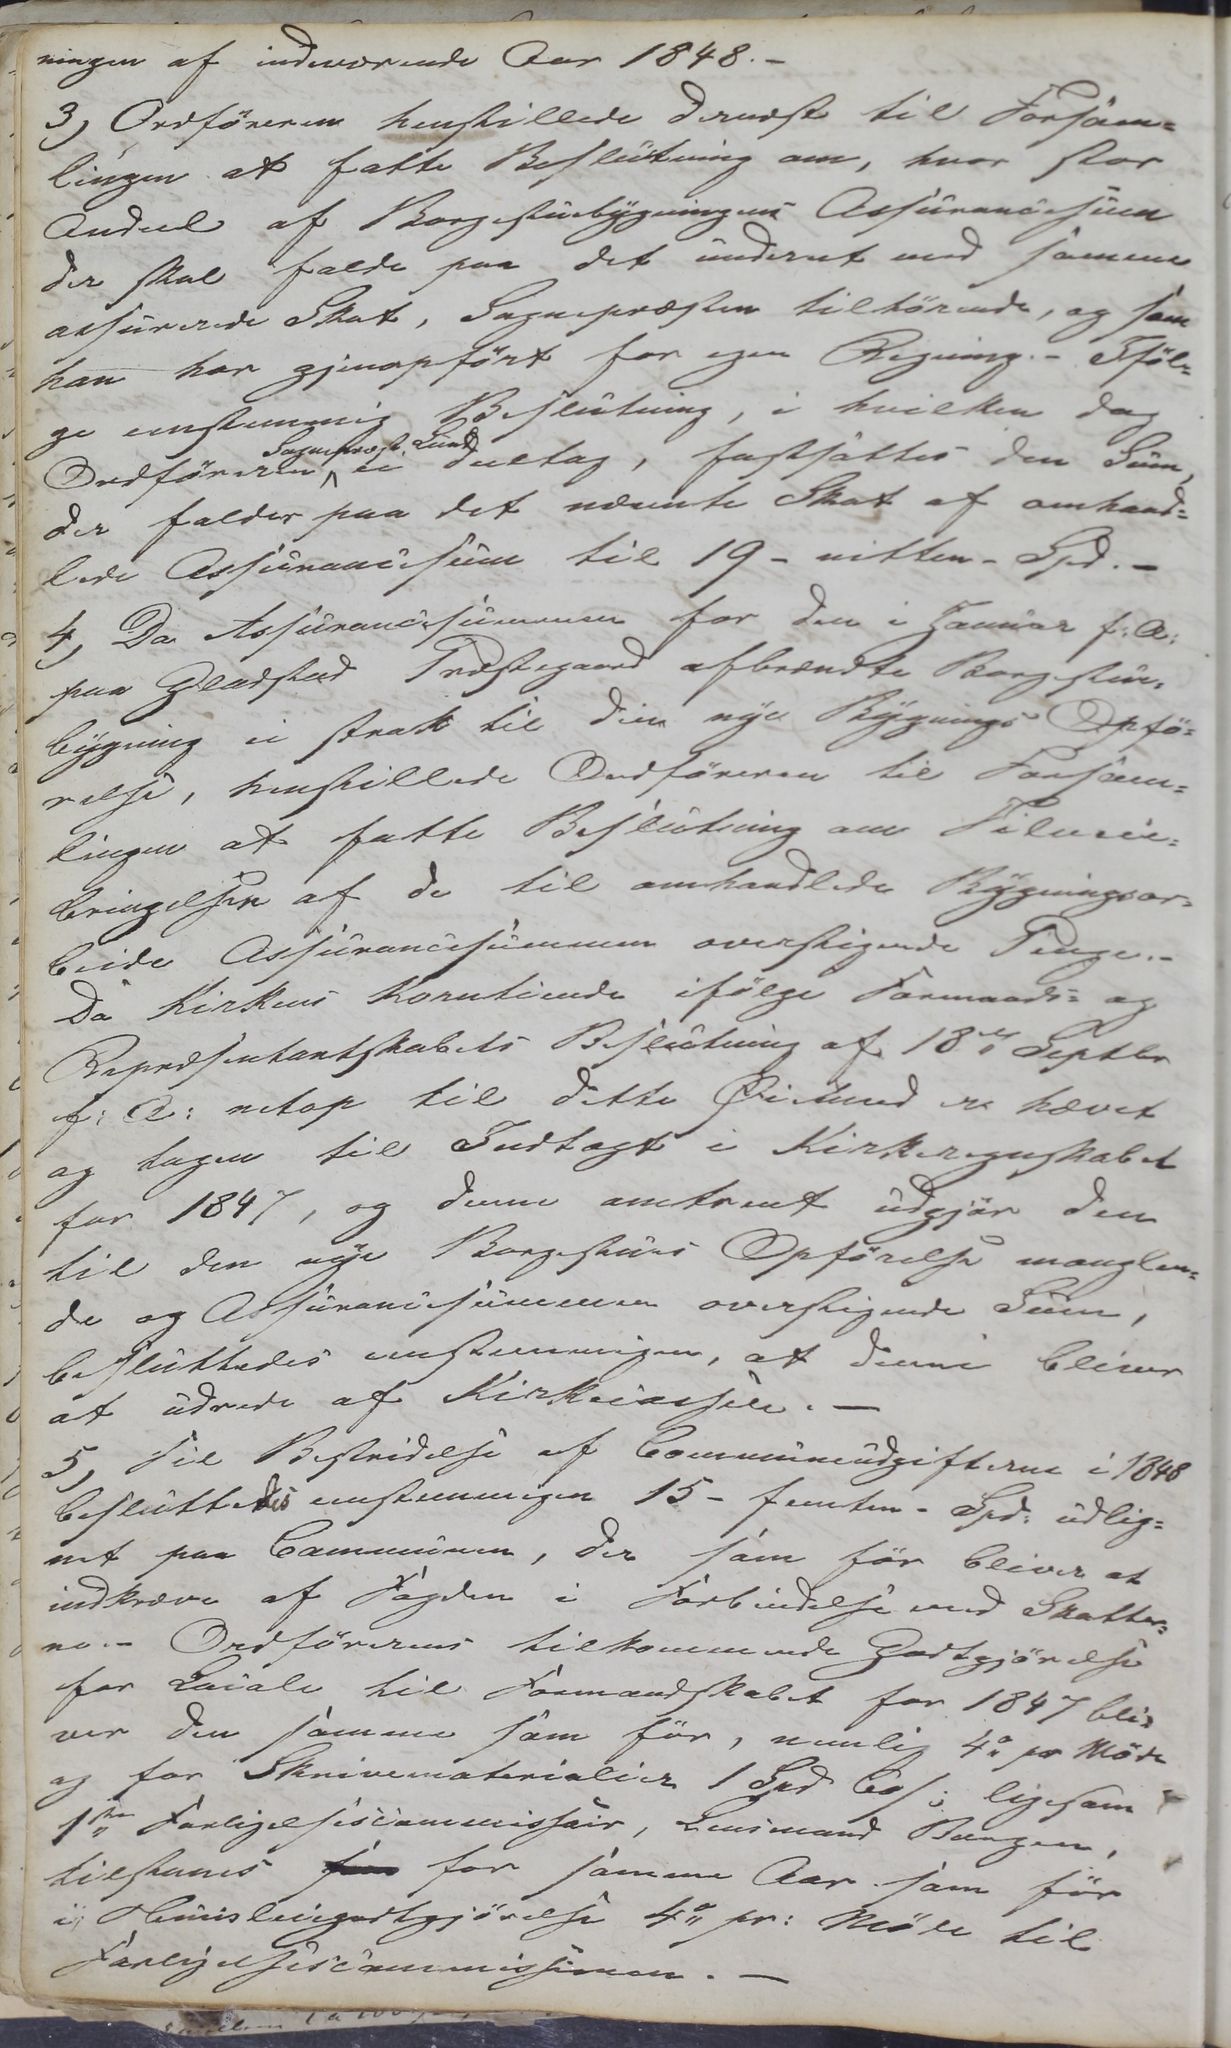 ningen af indeværende Aar 1848.-
3, Ordföreren henstillede dernæst til Forsam=
lingen at fatte Beslutning om, hvor stor
Andeel af Borgestuebygningens Assurancesum
der skal falde paa det under et med samme
assurerede Skot, Sognepræsten tilhörende, og som
han har gjenopfört for egen Regning.- Iföl=
ge enstemmig Beslutning, i hvilken dog
Ordföreren Sognepræst Lund ei deeltog, fastsattes den Sum,
der falder paa det nævnte Skot af omhand=
lede Assurancesum til 19 - nitten - Spd.-
4, Da Assurancesummen for den i Januar f: A:
paa Gladstad Præstegaard afbrændte Borgestue,
bygning ei strakk til den nye Bygnings Opfö=
relse, henstillede Ordföreren til Forsam=
lingen at fatte Beslutning om Tilveie=
bringelsen af de til omhandlede Bygningsar=
beide Assurancesummen overstigende Penge.-
Da Kirkens Korntiende ifölge Formands= og
Repræsentantskabets Beslutning af 18de Septbr
f: A: netop til dette Øiemed er hævet
og tagen til Indtægt i Kirkeregnskabet
for 1847, og denne omtrent udgjör den
til den nye Borgestues Opförelse manglen=
de og Assurancesummen overstigende Sum,
besluttedes enstemmigen, at denne bliver
at udrede af Kirkecassen.-
5, Til Bestridelse af Communeudgifterne i 1848
besluttedes enstemmigen 15 - femten - Spd: udlig=
net paa Communen, der som för bliver at
indkræve af Fogden i Forbindelse med Skatter=
ne.- Ordförerens tilkommende Godtgjörelse
for Locale til Formandskabet for 1847 bli=
ver den samme som för, nemlig 4 pr Möde
og for Skrivematerialier 1 Spd ligesom
1ste Forligelsescommissair, Lensmand
tilstaaes for samme Aar som för
i Huusleiegodtgjörelse 4 pr: Möde til
Forligelsescommissionen.-